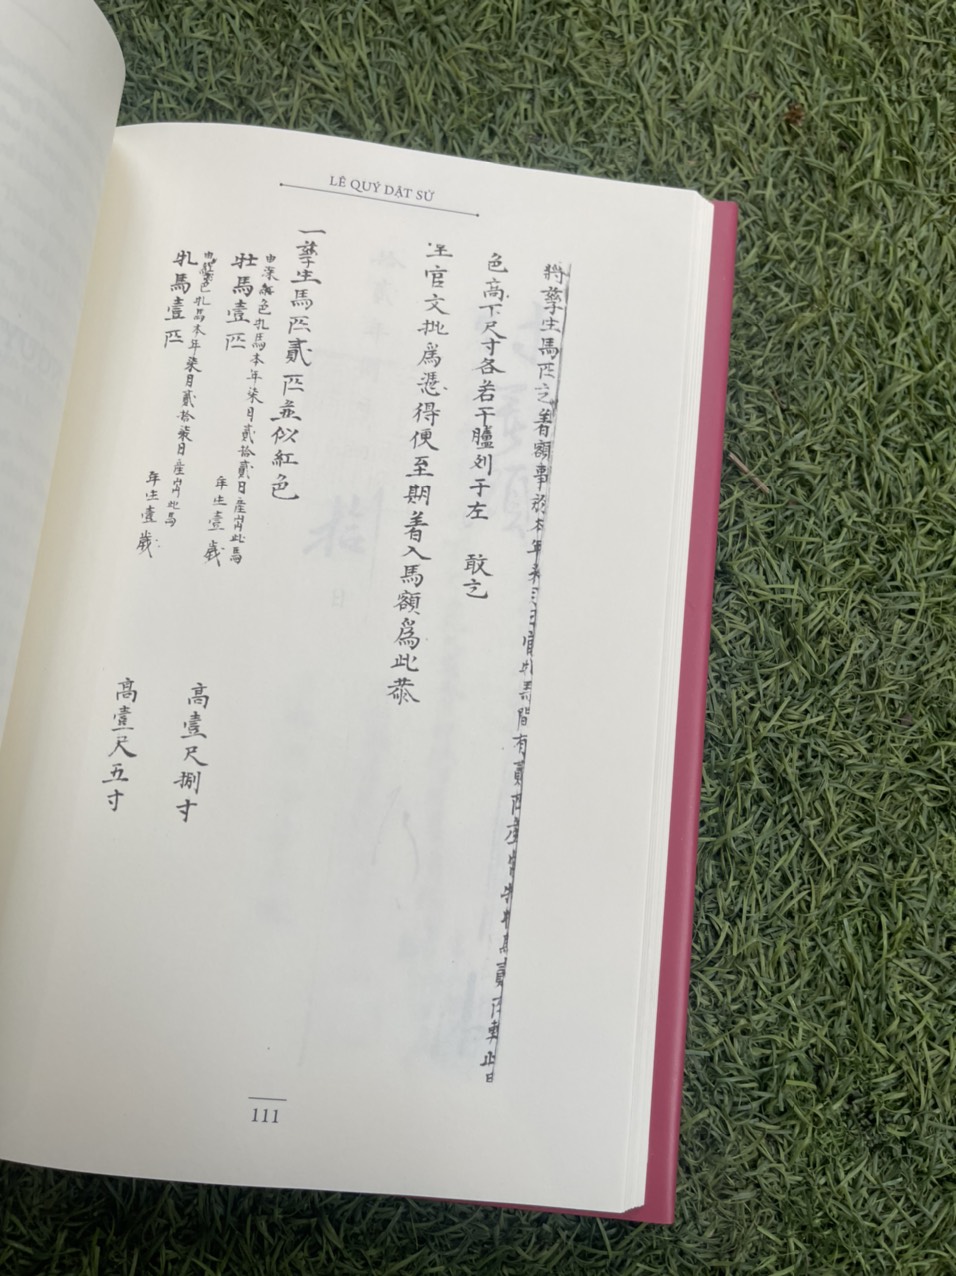 LÊ QUÝ DẬT SỬ
將孳生馬匹之着額事於本年
間有貳匹産
馬貳匹
色高下尺寸各若干臚列于左 敢乞
官文批爲憑得便至期着入馬額爲此恭
一孳生馬匹貳匹並似紅色
牡馬壹匹
色牝馬本年柒月貳拾貳日産此馬
年生壹歲
高壹尺捌寸
牝馬壹匹
色牝馬本年柒月貳拾柒日産此馬
年生壹歲
高壹尺五寸
111